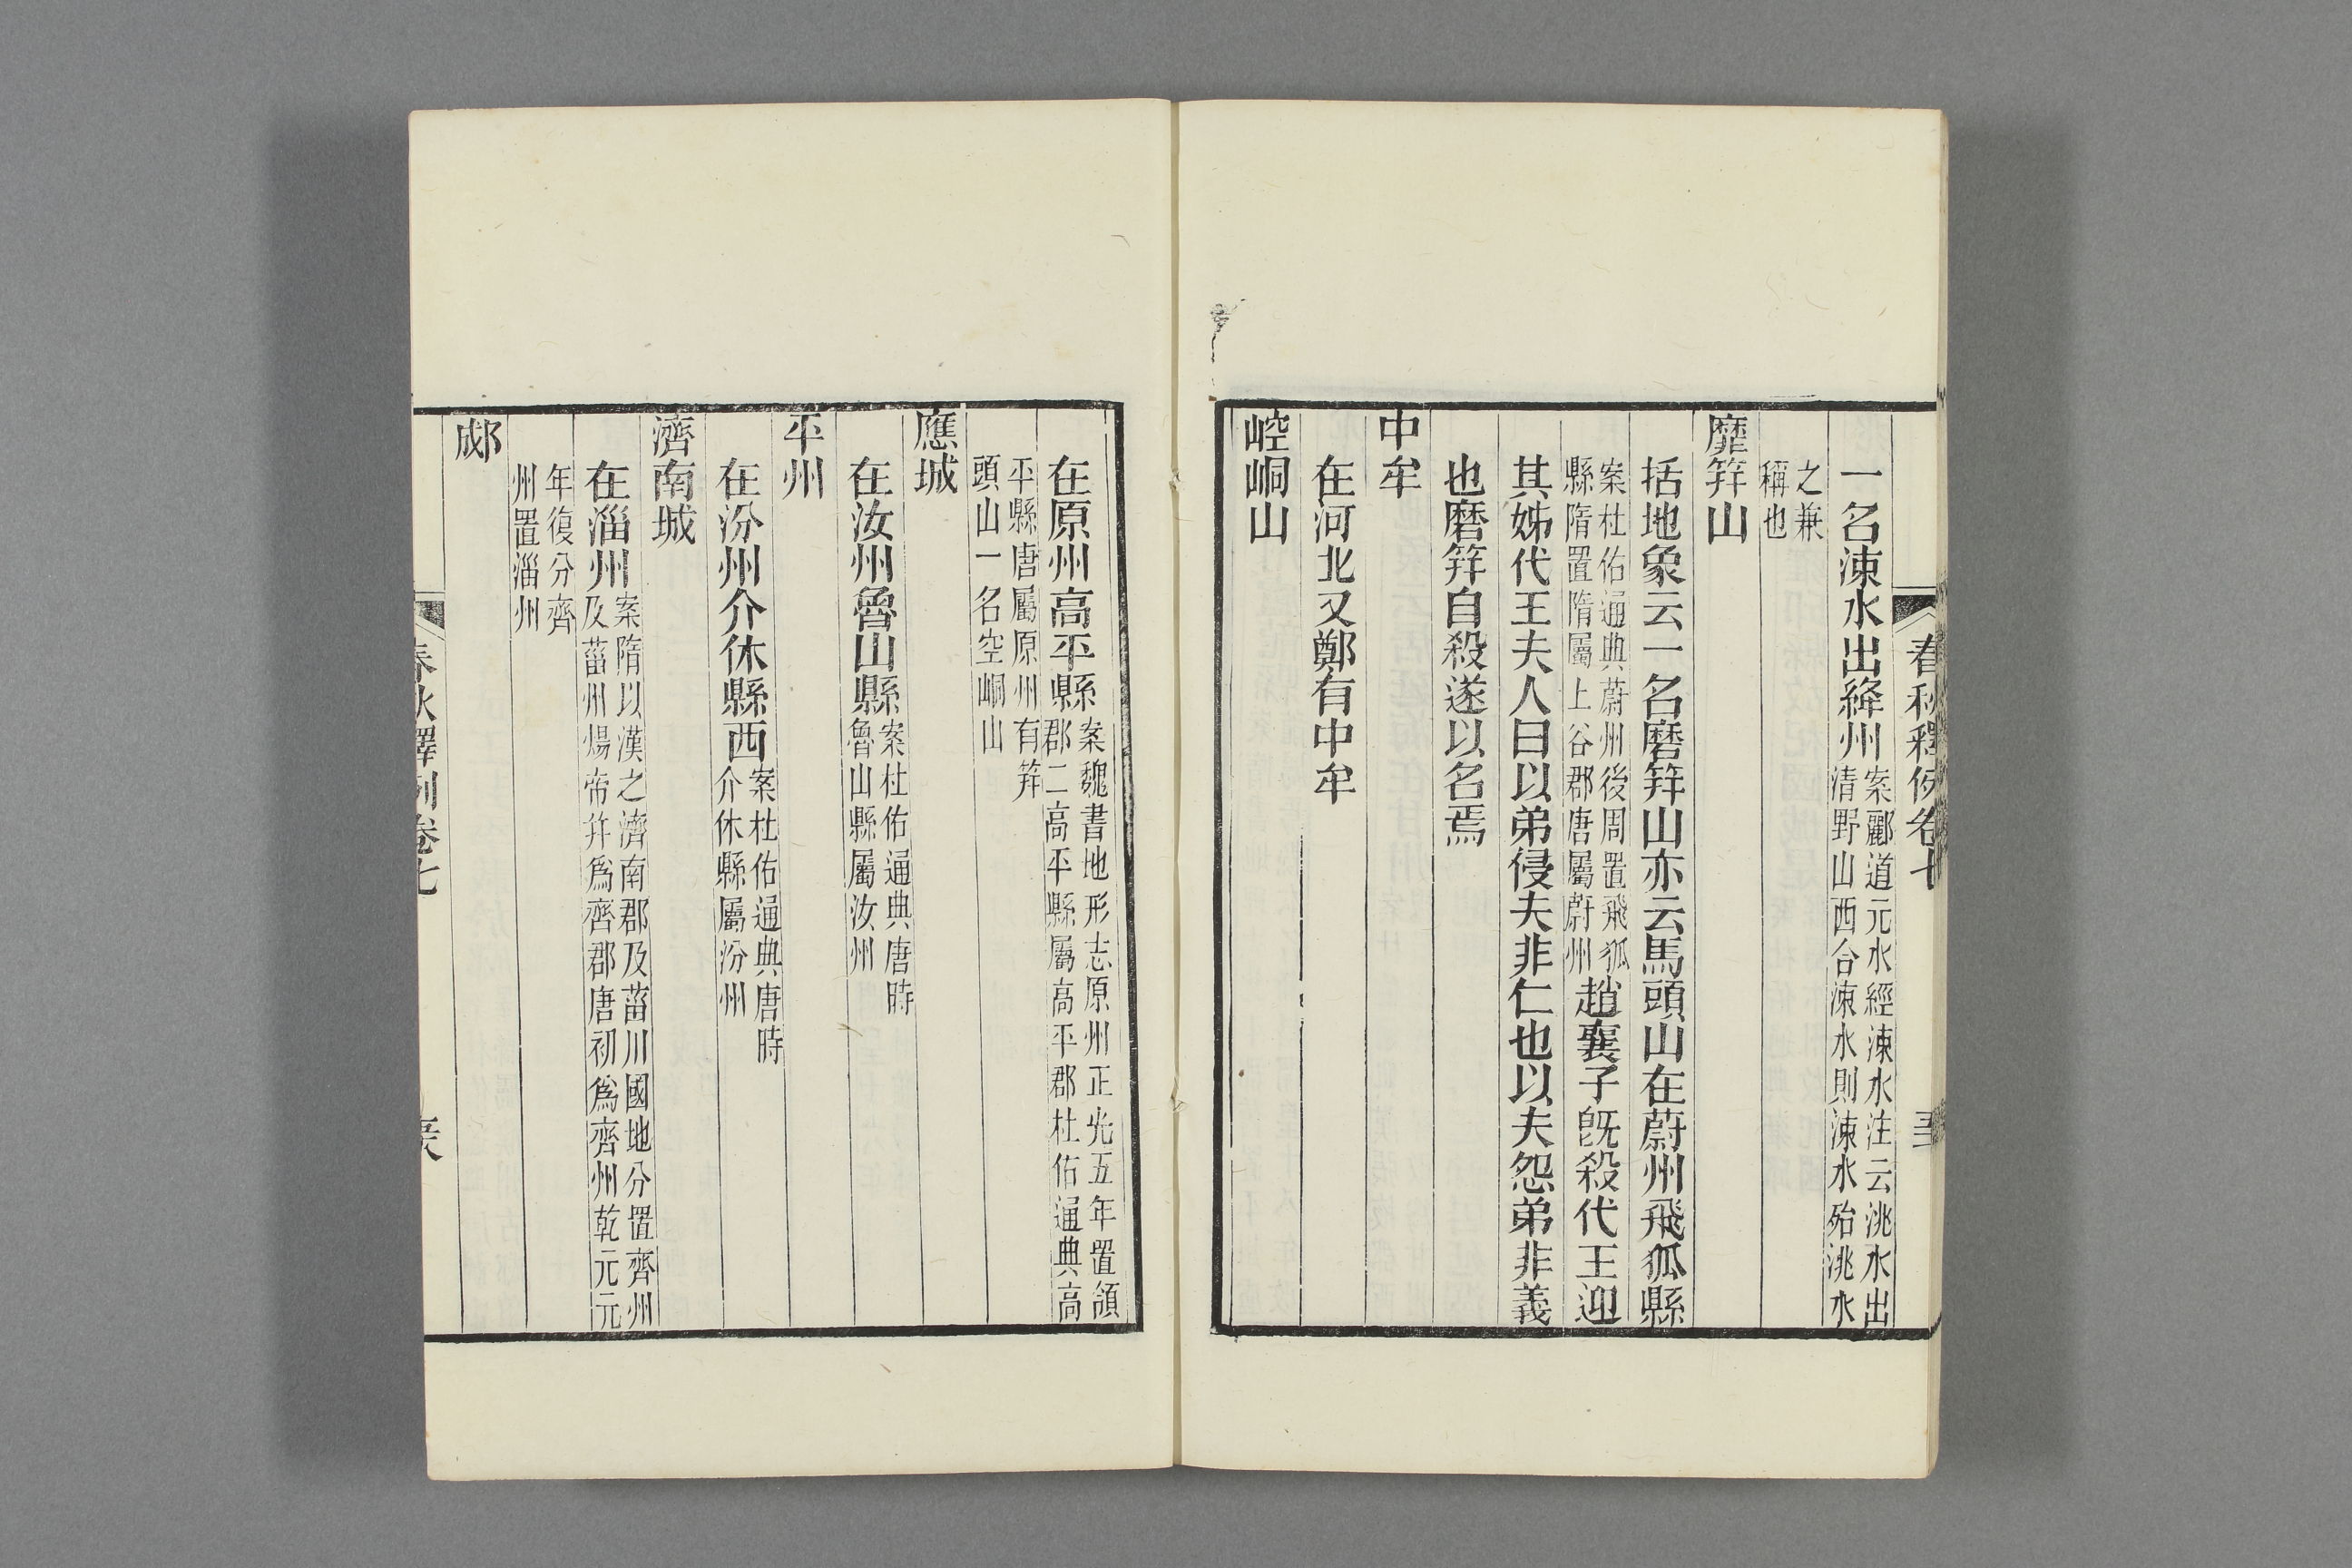 春秋釋例卷七
一名涑水出絳州案酈道元水經涑水注云洮水出清野山西合涑水則涑水殆洮水
之兼稱也
靡笄山
括地象云一名磨笄山亦云馬頭山在蔚州飛狐縣
案杜佑通典蔚州後周置飛狐縣隋置隋屬上谷郡唐屬蔚州趙襄子旣殺代王迎
其姊代王夫人曰以弟侵夫非仁也以夫怨弟非義
也磨笄自殺遂以名焉
中牟
在河北又鄭有中牟
崆峒山
在原州高平縣案魏書地形志原州正光五年置領郡二高平縣屬高平郡杜佑通典高
平縣唐屬原州有笄頭山一名空峒山
應城
在汝州魯山縣案杜佑通典唐時魯山縣屬汝州
平州
在汾州介休縣西案杜佑通典唐時介休縣屬汾州
濟南城
在淄州案隋以漢之濟南郡及菑川國地分置齊州及菑州煬帝幷爲齊郡唐初爲齊州乾元元
年復分齊州置淄州
郕
春秋釋例卷七